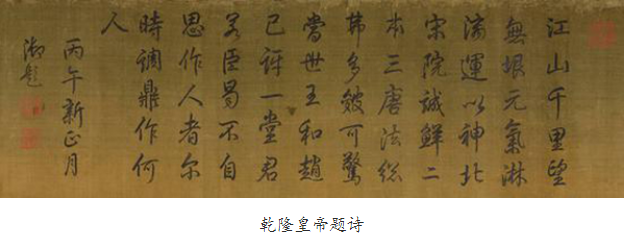 江山千里望
無垠元氣淋
漓運以神北
宋院誠鮮二
本三唐法総
弗多皴可驚
當世王和趙
已訝一堂君
若臣曷不自
思作人者尔
時調鼎作何
人
丙午新正月
御題
乾隆皇帝题诗